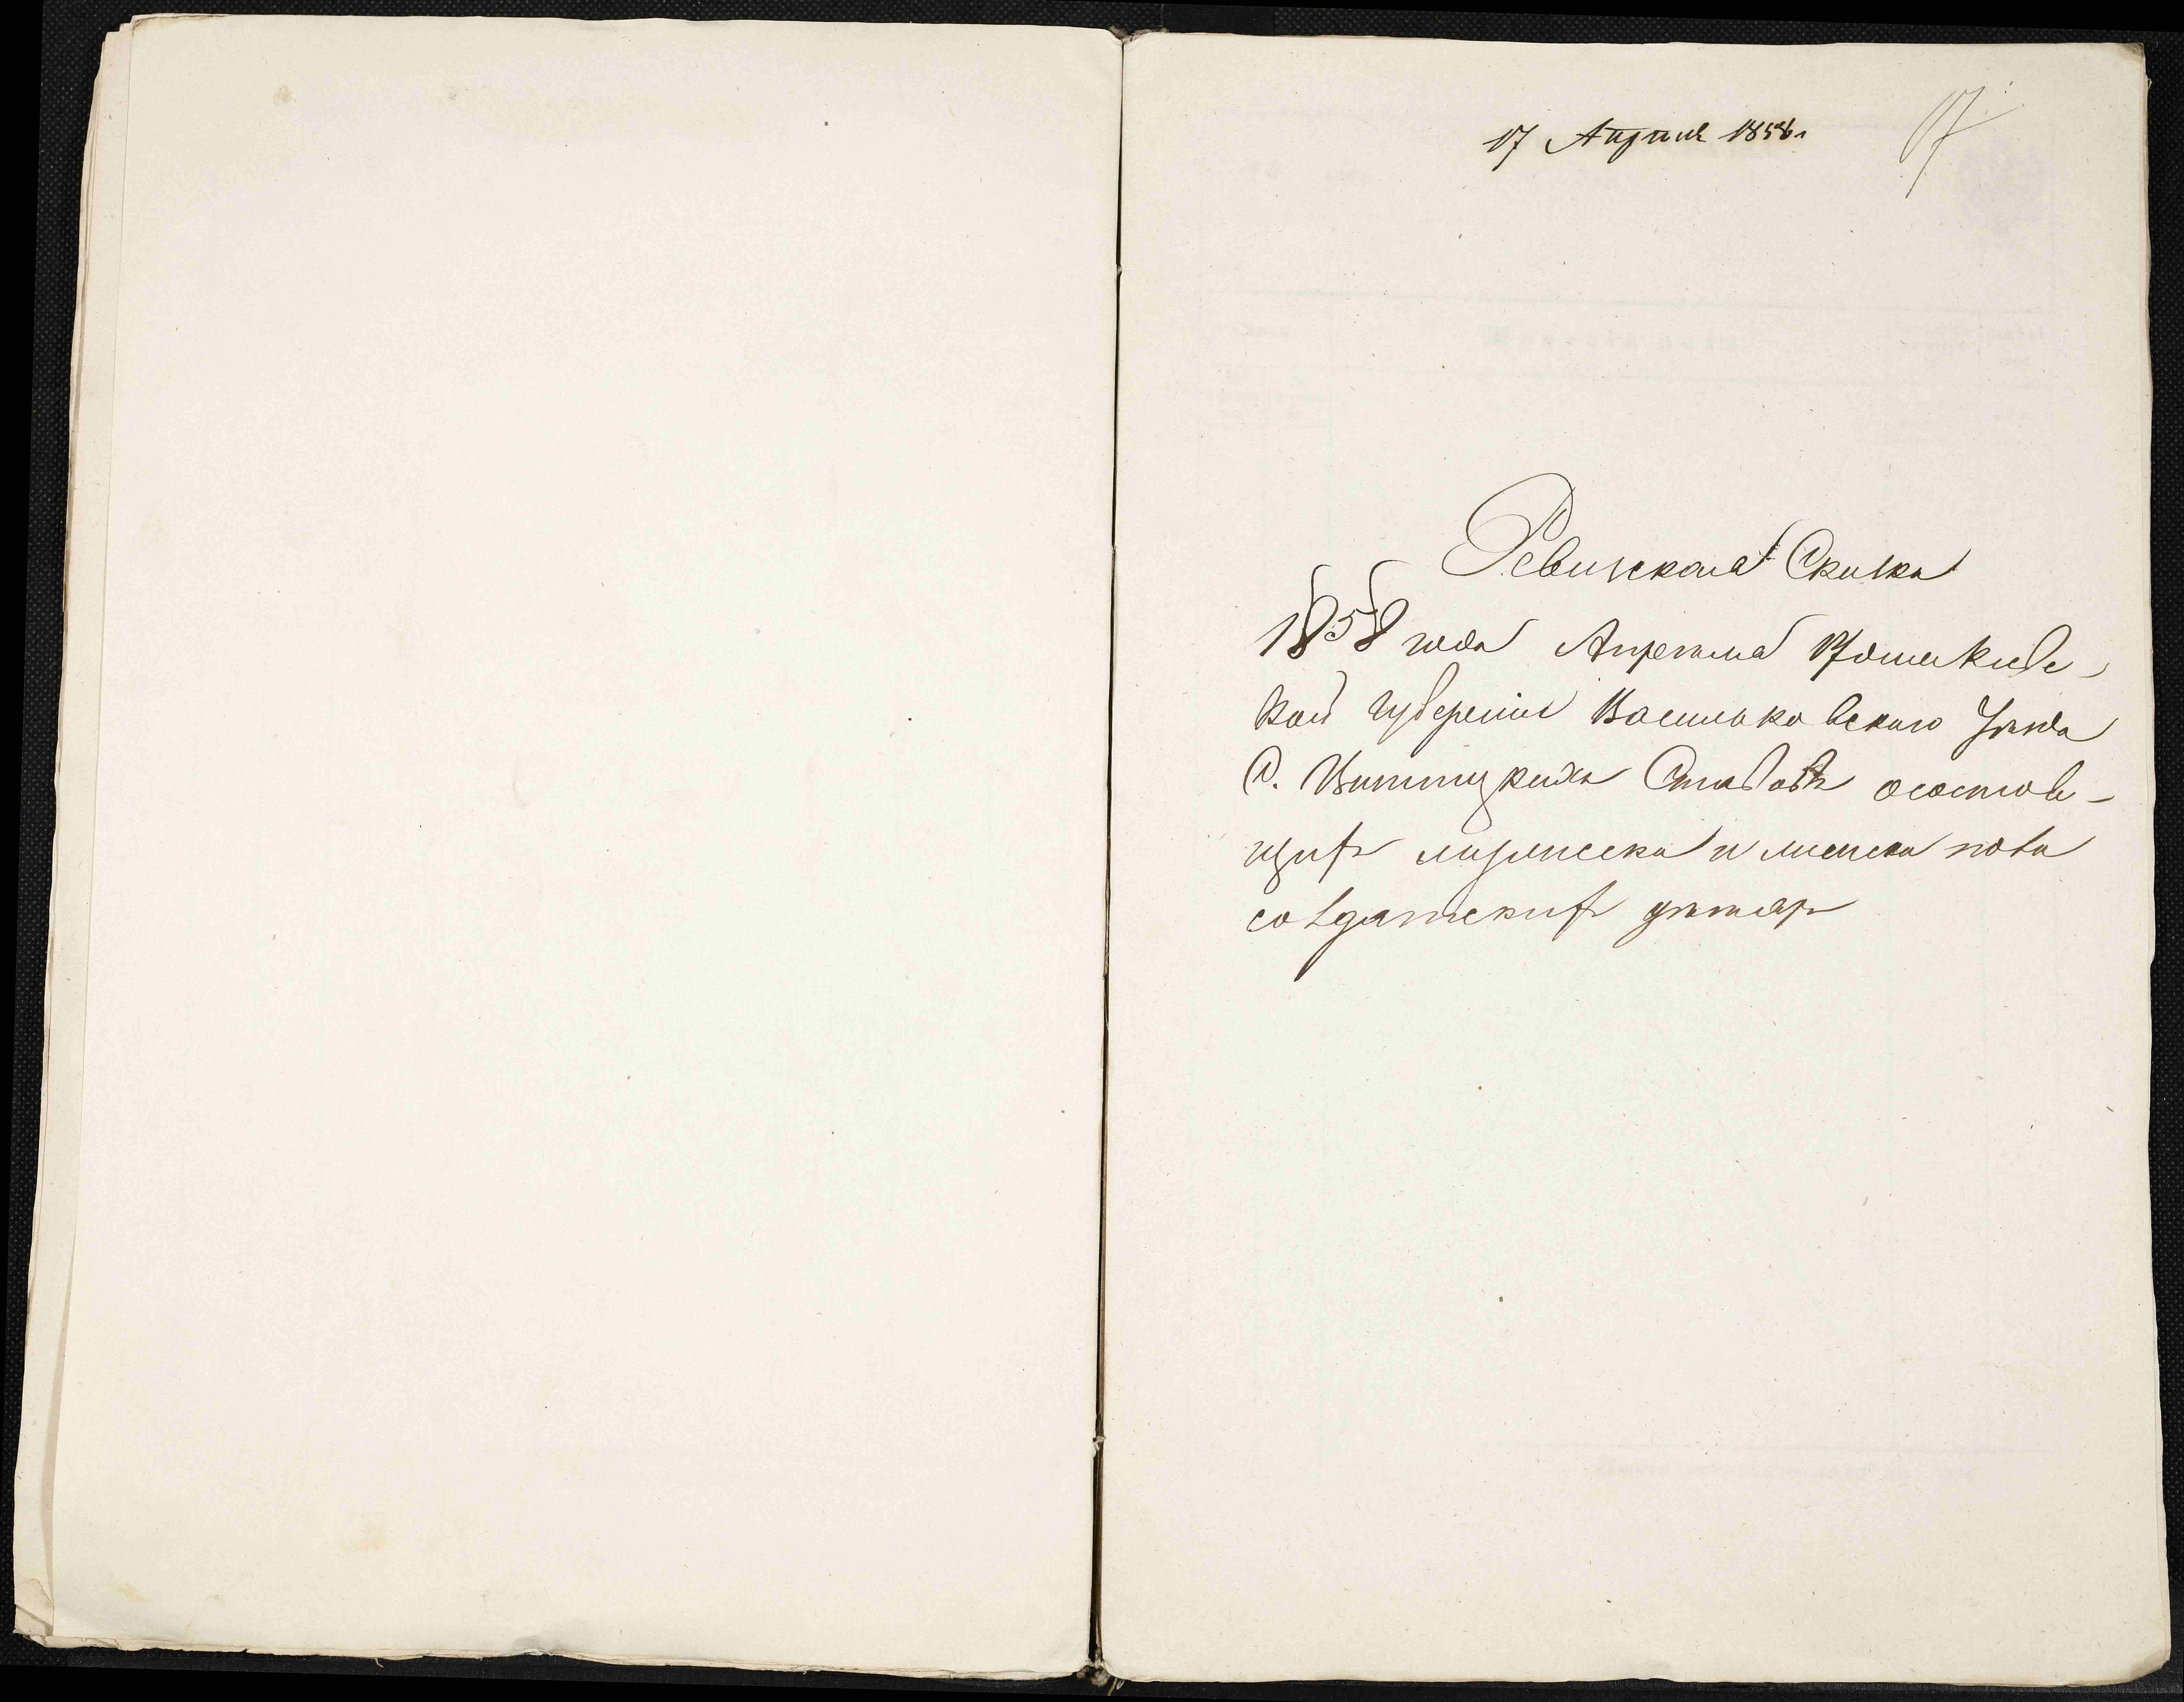 17 Апреля 1858 г.
17
Ревизская Сказка
1858 года Апреля 17 дня Киевс-
кой губернии Васильковского Уезда
С. Винницких Ставовъ о состоя-
щихъ мужеска и женска пола
солдатскихъ детяхъ